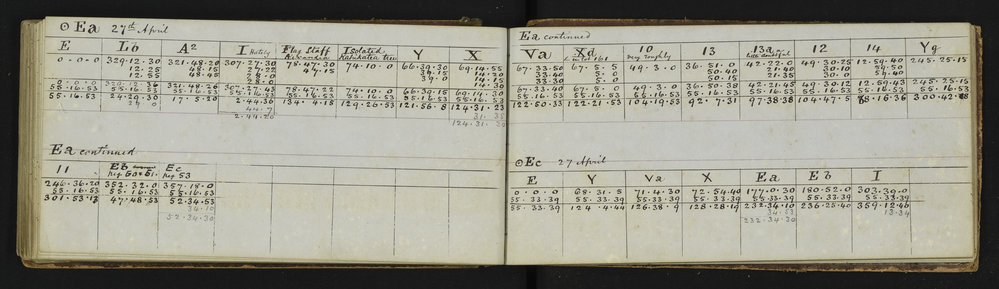 ⊙Ea 27th April
E Lb A2 I Hotels Flag Staff Alexandra Isolated Kahikatea tree Y X
0.0.0 329.12.30 321.48.20 307.27.30 78.47.30 74.10.0 66.39.30 69.14.55
12.25 48.15 27.22 47.15 39.15 14.20
12.55 48.45 28.0 39.0 14.30
0.0.0 321.48.26 307.27.43 78.47.22 74.10.0 66.39.15 69.14.30
55.16.53 55.16.53 55.16.53 55.16.53 55.16.53 55.16.53 55.16.53 55.16.53
55.16.53 24.29.30 17.5.20 2.44.36 134.4.15 129.26.53 121.56.8 124.31.23
44.7 31.38
2.44.20 124.31.30
Ea continued
11 Eb Ec
pag 53
246.36.20 352.32.0 357.18.0
55.16.53 55.16.53 55.16.53
301.53.13 47.48.53 52.34.53
34.10
52.34.30
Ea continued
Va Xa 10 very roughly 13 13a 12 14 Yg
67.33.50 67.5.5 49.3.0 36.51.0 42.22.0 49.30.25 12.59.40 245.25.15
33.40 5.0 50.40 21.40 30.10 59.50
33.30 5.0 50.15 21.35 30.0 59.40
67.33.40 67.5.0 49.3.0 36.50.38 42.21.45 49.30.12 12.59.43 245.25.15
55.16.53 55.16.53 55.16.53 55.16.53 55.16.53 55.16.53 55.16.53 55.16.53
122.50.33 122.21.53 104.19.53 92.7.31 97.38.38 104.47.5 68.16.36 300.42.8
⊙Ec 27 April
E Y Va X Ea Eb I
0.0.0 68.31.5 71.4.30 72.54.40 177.0.30 180.52.0 303.39.0
55.33.39 55.33.39 55.33.39 55.33.39 55.33.39 55.33.39 55.33.39
55.33.39 124.4.44 126.38.9 128.28.19 232.34.10 236.25.40 359.12.40
34.53 13.34
232.34.30